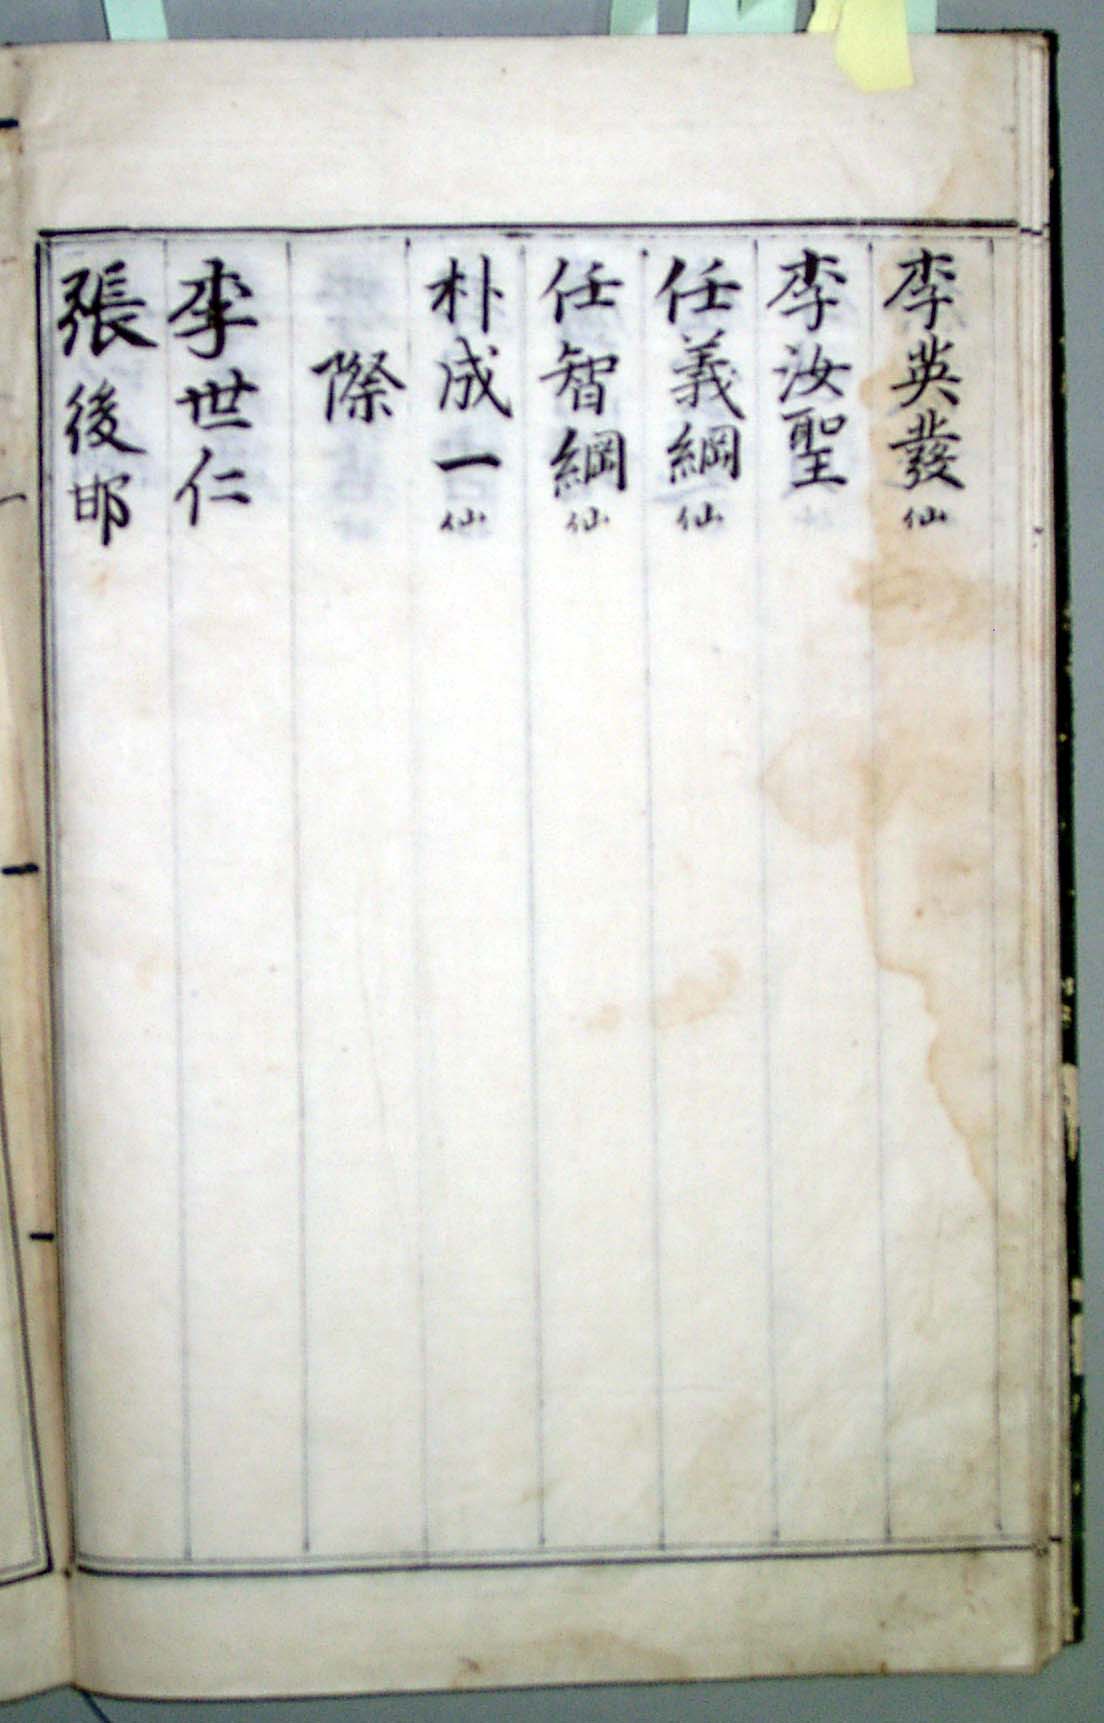 李英發仙
李汝聖
任義綱仙
任智綱仙
朴成一仙
際
李世仁
張後邯